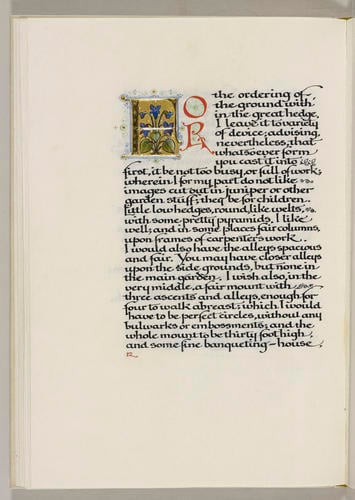 FOR the ordering of
the ground with-
in the great hedge,
I leave it to variety
of device; advising,
nevertheless, that
whatsoever form
you cast it into
first, it be not too busy, or full of work;
wherein I for my part do not like
images cut out in juniper or other
garden stuff; they be for children.
Little low hedges, round, like welts,
with some pretty pyramids, I like
well; and in some places fair columns,
upon frames of carpenter's work.
I would also have the alleys spacious
and fair. You may have closer alleys
upon the side grounds, but none in
the main garden. I wish also, in the
very middle, a fair mount with
three ascents and alleys, enough for
four to walk abreast; which I would
have to be perfect circles, without any
bulwarks or embossments; and the
whole mount to be thirty foot high;
and some fine banqueting-house,
12